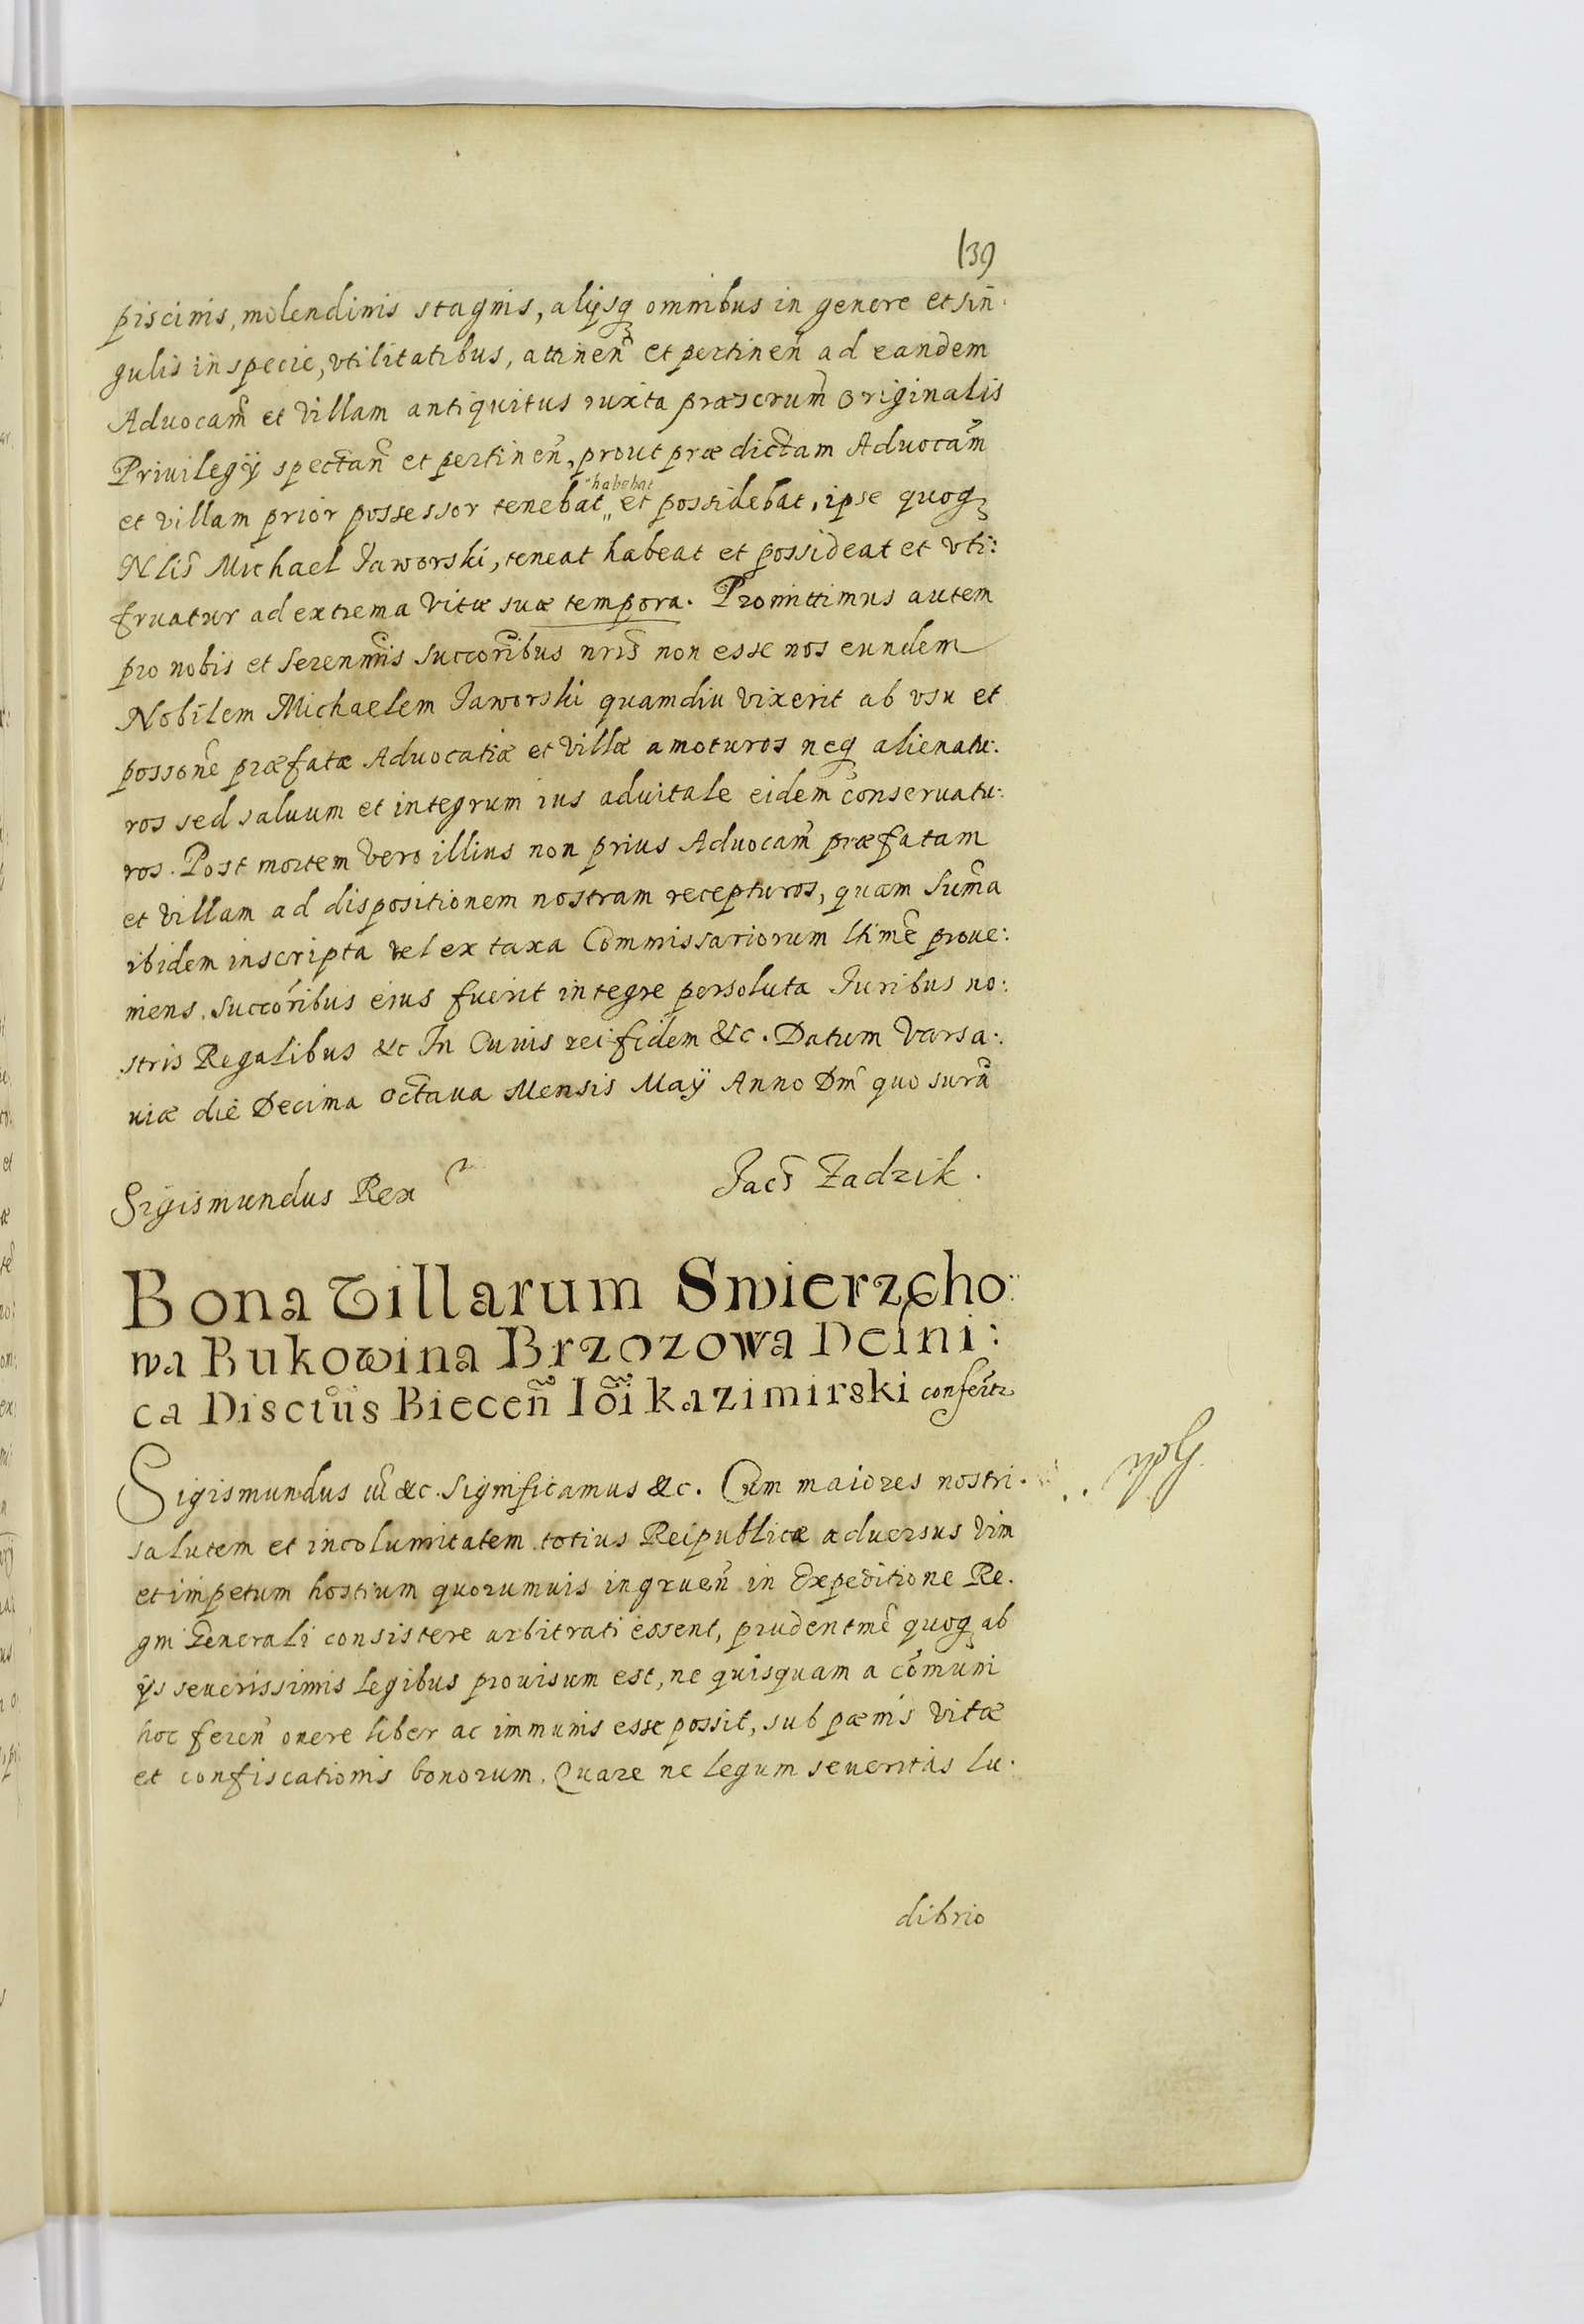 139
piscinis, molendinis stagnis, alijsq omnibus in genere et sin.
gulis in specie, vtilitatibus, attinen et pertinen ad eandem
Aduocam et Villam antiquitus iuxta præscrum originalis
Priuilegÿ spectan et pertinen, prout prædictam Aduocam
habebat
et villam prior possessor tenebat„ et possidebat, ipse quoq
Nlis Michael Jaworski, teneat habeat et possideat et vti:
fruatur ad extrema vitæ suæ tempora. Promittimus autem
pro nobis et Serenmis Succoribus nris non esse nos eundem
Nobilem Michaelem Jaworski quamdiu vixerit ab vsu et
possone præfatæ Aduocatiæ et Villæ amoturos neq alienatu:
ros sed saluum et integrum ius aduitale eidem conseruatu:
ros. Post mortem vero illius non prius Aduocam præfatam
et villam ad dispositionem nostram recepturos, quam Suma
ibidem inscripta vel ex taxa Commissariorum ltime proue:
niens. Succoribus eius fuerit integre persoluta Juribus no:
stris Regalibus &c In Cuius rei fidem &c. Datum Varsa:
uiæ die Decima octaua Mensis Maÿ Anno Dm quo sura
Sigismundus Rex
Jacs Zadzik.
Bona Villarum Swierzcho:
wa Bukowina Brzozowa Deſni:
ca Disctus Biecen Ioi kazimirski confertr
Sigismundus &c. Significamus &c. Cum maiores nostri.
salutem et incolumitatem totius Reipublicæ aduersus vim
et impetum hostium quorumuis ingruen in Expeditione Re.
gni Generali consistere arbitrati essent, prudentme quoq ab
ÿs seuerissimis legibus prouisum est, ne quisquam a comuni
hoc feren onere liber ac immunis esse possit, sub pænis vitæ
et confiscationis bonorum. Quare ne legum seueritas lu.
dibrio